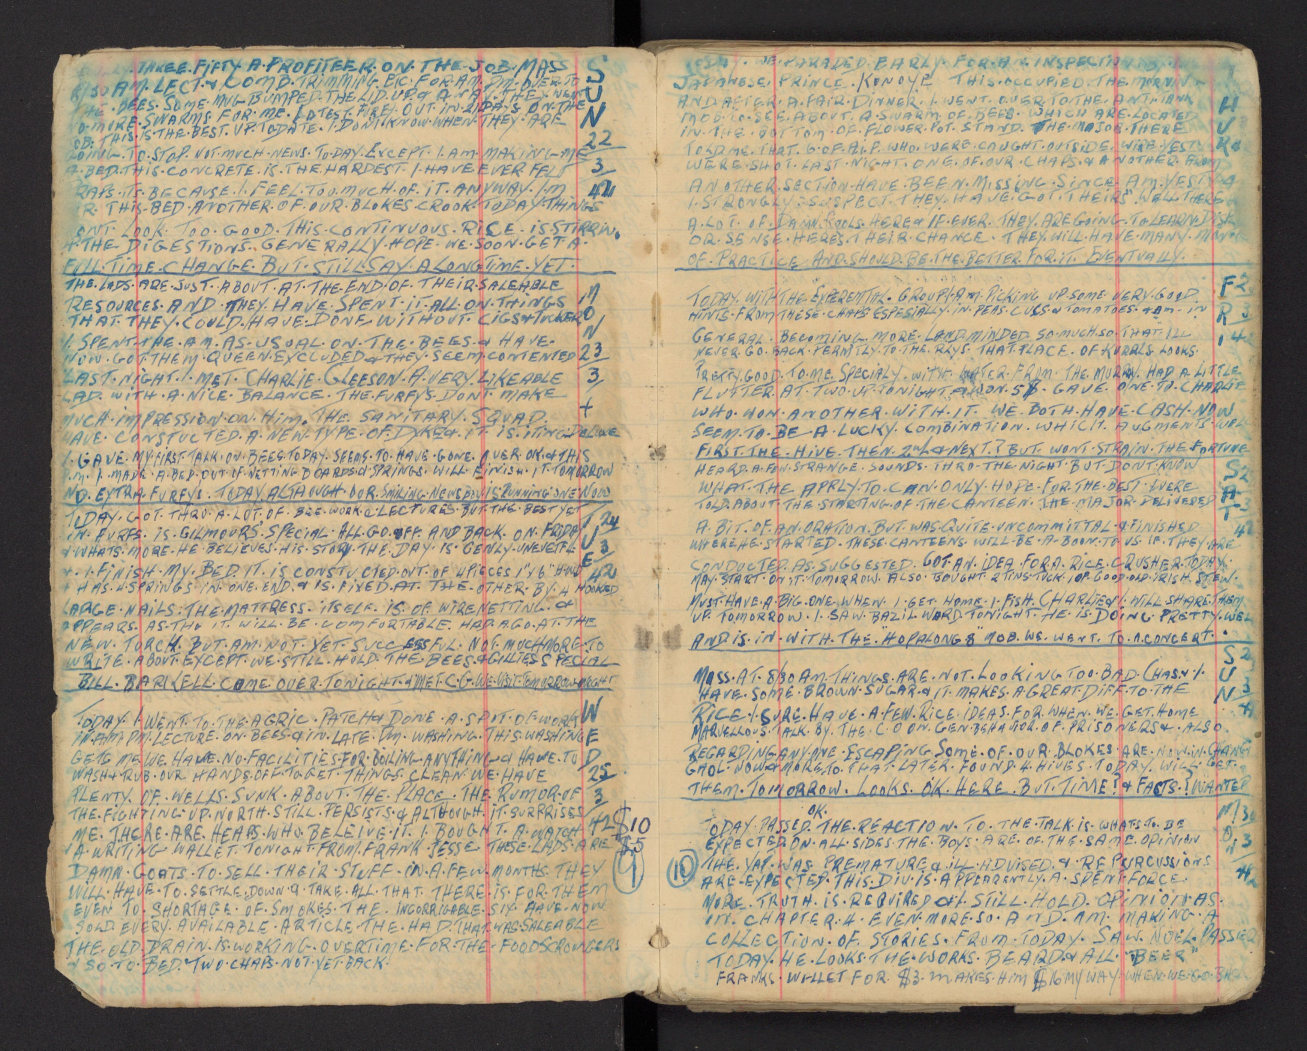 THREE.FIFTY A.PROFITEER.ON.THE.JOB.MASS
8/30 AM. LECT & COMB.TRIMMING ETC FOR.AM. PM. OVER TO
THE.BEES. SOME.MUG BUMPED.THE.LID.UP & THEY KNEW
NO MORE.SWARMS FOR.ME. LATEST FIRE. OUT IN 2 DAYS ON.THE
THIS.IS.THE.BEST.UP.TO DATE. I DON'T KNOW WHEN.THEY.ARE
GOING.TO STOP. NOT MUCH.NEWS.TODAY EXCEPT I.AM MAKING.ME
A.BED.THIS.CONCRETE.IS.THE.HARDEST.I.HAVE EVER FELT
PRAPS.ITS BECAUSE.I.FEEL.TOO.MUCH.OF.IT. ANYWAY.IM
THIS.BED.ANOTHER.OF.OUR.BLOKES CROOK TODAY.THINGS
DONT LOOK.TOO.GOOD.THIS.CONTINUOUS.RICE.IS STIRRING.
THE DIGESTIONS.GENERALLY.HOPE.WE.SOON.GET A.
FULL TIME.CHANGE.BUT.STILL SAY.A LONG TIME.YET.
SUN
22
3
42
THE.LADS.ARE.JUST.ABOUT.AT.THE.END.OF.THEIR.SALEABLE
RESOURCES.AND.THEY.HAVE.SPENT.IT.ALL.ON.THINGS
THAT THEY.COULD.HAVE.DONE WITHOUT.CIGS & TUCKER
I.SPENT.THE.AM.AS.USUAL.ON THE.BEES.& HAVE.
NOW.GOT THEM QUEEN.EXCLUDED.& THEY SEEM CONTENTED
LAST.NIGHT.I.MET.CHARLIE GLEESON.A.VERY.LIKEABLE
LAD.WITH.A NICE.BALANCE.THE.FURFYS.DONT MAKE
MUCH.IMPRESSION ON.HIM.THE SANITARY.SQUAD.
HAVE CONSTUCTED.A NEW TYPE.OF.DYKE & IT.IS.IT. DELUXE
I GAVE.MY.FIRST TALK ON.BEES.TODAY. SEEMS TO HAVE.GONE.OVER.OK & THIS
P.M.I.MADE.A BED.OUT OF.NETTING BOARDS & SPRINGS.WILL FINISH.IT.TOMORROW
NO.EXTRA.FURFYS.TODAY.ALTHOUGH OUR SMILING NEWSBOY.IS RUNNING ONE NOW
MON
23
3
TODAY.GOT THRO.A.LOT.OF.BEE.WORK & LECTURES.BUT THE.BEST YET
IN FURFS.IS GILMOURS SPECIAL.ALL.GO.OFF.AND BACK.ON FRIDAY
& WHATS.MORE.HE BELIEVES.HIS STORY. THE.DAY IS GENLY.UNEVETFUL
I FINISH.MY BED.IT.IS CONSTUCTED.OUT OF 4 PIECES 1"X6" HARD
& HAS.4 SPRINGS.IN ONE.END & IS FIXED AT THE OTHER BY 4 HOOKED
LARGE.NAILS.THE MATTRESS ITSELF.IS OF WIRENETTING.&
APPEARS.AS.THO IT WILL.BE.COMFORTABLE. HAD A GO AT.THE
NEW.TORCH.BUT AM NOT YET SUCCESSFUL.NOT MUCH MORE TO
WRITE.ABOUT EXCEPT.WE STILL.HOLD.THE BEES & GILLIES SPECIAL
BILL.BARKELL COME OVER TONIGHT & MET C.G. WE VISIT TOMORROW NIGHT
TUE
24
3
42
TODAY I WENT.TO.THE AGRIC.PATCH & DONE.A.SPOT OF.WORK
IN AM PM.LECTURE.ON BEES & IN LATE.PM.WASHING.THIS WASHING
GETS ME.WE HAVE.NO.FACILITIES.FOR.BOILING.ANYTHING & HAVE.TO
WASH & RUB OUR.HANDS.OFF TO GET.THINGS.CLEAN WE HAVE
PLENTY.OF.WELLS.SUNK.ABOUT THE.PLACE.THE RUMOR OF
THE FIGHTING.UP.NORTH.STILL.PERSISTS & ALTHOUGH.IT SURPRISES
ME.THERE.ARE.HEAPS.WHO BELEIVE.IT.I BOUGHT A WATCH
A.WRITING WALLET TONIGHT FROM.FRANK JESSE.THESE LADS ARE
DAMN.GOATS TO SELL.THEIR STUFF.IN.A.FEW MONTHS THEY
WILL.HAVE.TO SETTLE.DOWN & TAKE ALL THAT.THERE.IS.FOR.THEM
EVEN TO.SHORTAGE.OF SMOKES.THE.INCORRIGABLE.SIX HAVE NOW
SOLD EVERY.AVAILABLE.ARTICLE.THE HAD THAT WAS SALEABLE
THE OLD.DRAIN.IS WORKING.OVERTIME.FOR.THE.FOODSCROUNGERS
& SO TO.BED.TWO.CHAPS.NOT YET BACK.
WED
25
3
42
$10
$5
9
WE.PARADED.EARLY.FOR.AN INSPECTION
JAPANESE.PRINCE.KONOYE THIS.OCCUPIED.THE MORNIN
AND AFTER.A FAIR DINNER.I WENT OVER TO THE.ANTI.TANK
MOB TO SEE.ABOUT.A SWARM OF.BEES.WHICH ARE LOCATED
IN.THE.BOTTOM.OF.FLOWER.POT.STAND.THE.MAJOR.THERE
TOLD ME.THAT.6 OF A.I.F. WHO.WERE.CAUGHT OUTSIDE.WIRE YEST
WERE SHOT.LAST NIGHT.ONE OF.OUR CHAPS.& ANOTHER FROM
ANOTHER SECTION HAVE BEEN MISSING SINCE AM YESTY
I STRONGLY SUSPECT.THEY.HAVE.GOT THEIRS.WELL THERES
A.LOT.OF.DAMN.FOOLS HERE & IF EVER THEY ARE GOING TO LEARN DISC
OR SENSE HERES.THEIR CHANCE. THEY.WILL.HAVE.MANY.MONTHS
OF.PRACTICE AND SHOULD BE.THE BETTER FOR.IT.EVENTUALLY.
TODAY.WITH THE EXPERENTAL.GROUP I AM PICKING UP SOME VERY GOOD
HINTS FROM THESE.CHAPS ESPESIALLY.IN PEAS.CUCS & TOMATOES.& AM.IN
GENERAL.BECOMING MORE.LANDMINDED SO MUCH SO THAT ILL
NEVER.GO.BACK PERMTLY TO THE RLYS.THAT PLACE.OF KURRLS LOOKS
PRETTY GOOD TO ME SPECIALY.WITH WATER FROM.THE MURRAY. HAD A LITTLE
FLUTTER AT TWO UP TONIGHT & WON $ GAVE ONE TO CHARLIE
WHO WON.ANOTHER.WITH.IT.WE BOTH HAVE CASH.NOW
SEEM.TO.BE A LUCKY COMBINATION.WHICH AUGMENTS WELL
FIRST THE.HIVE THEN.2ND & NEXT? BUT WONT.STRAIN THE FORTUNE
FRI
3
42
HEARD A FEW STRANGE SOUNDS THRO THE NIGHT.BUT DONT KNOW
WHAT THE APPLY.TO CAN ONLY HOPE FOR THE BEST.WERE
TOLD ABOUT THE STARTING OF.THE CANTEEN.THE MAJOR DELIVERED
A BIT OF.AN ORATION.BUT.WAS.QUITE UNCOMMITTAL & FINISHED
WHERE HE STARTED.THESE.CANTEENS.WILL BE.A BOON TO US IF.THEY ARE
CONDUCTED AS SUGGESTED. GOT AN IDEA.FOR A RICE CRUSHER TODAY.
MAY.START ON IT TOMORROW.ALSO BOUGHT 2 TINS TUCK.1 OF.GOOD OLD IRISH STEW.
MUST HAVE.A BIG.ONE WHEN I GET HOME.1 FISH.CHARLIE & I WILL SHARE THEM
UP.TOMORROW.I SAW BAZIL WARD TONIGHT.HE IS DOING PRETTY WELL
AND IS IN.WITH.THE.HOPALONG MOB.WE.WENT.TO A CONCERT.
SAT
3
42
MASS.AT 8/30 AM.THINGS.ARE.NOT.LOOKING TOO BAD.CHAS & I
HAVE.SOME.BROWN SUGAR & IT MAKES.A GREAT DIFF TO THE
RICE.I SURE.HAVE.A FEW RICE IDEAS.FOR.WHEN WE.GET.HOME
MARVELLOUS TALK.BY THE C.O ON GEN.BEHAVIOR.OF.PRISONERS & ALSO
REGARDING.ANYONE.ESCAPING SOME.OF.OUR.BLOKES ARE.NOW IN CHANGI
GAOL NOW & MORE.TO THAT LATER.FOUND.4.HIVES TODAY.WILL GET.
THEM TOMORROW.LOOKS OK HERE BUT TIME? & FACTS? WANTED
SUN
3
TODAY PASSED OK.THE REACTION.TO.THE.TALK IS WHATS TO.BE
EXPECTED ON.ALL SIDES.THE BOYS ARE OF THE SAME OPINION
THE YAP WAS PREMATURE & ILL ADVISED & REPURCUSSIONS
ARE.EXPECTED.THIS.DIV IS.APPEARENTLY.A SPENT FORCE.
MORE TRUTH.IS REQUIRED & I STILL HOLD.OPINION AS.
IN.CHAPTER.4.EVEN MORE SO.AND.AM MAKING.A
COLLECTION OF STORIES.FROM TODAY.SAW.NOEL PASSIER
TODAY HE LOOKS.THE WORKS.BEARD & ALL "BEER"
FRANKS.WALLET FOR $3.MAKES.HIM $16 MY WAY.WHEN WE GO
MON
30
3
42
10